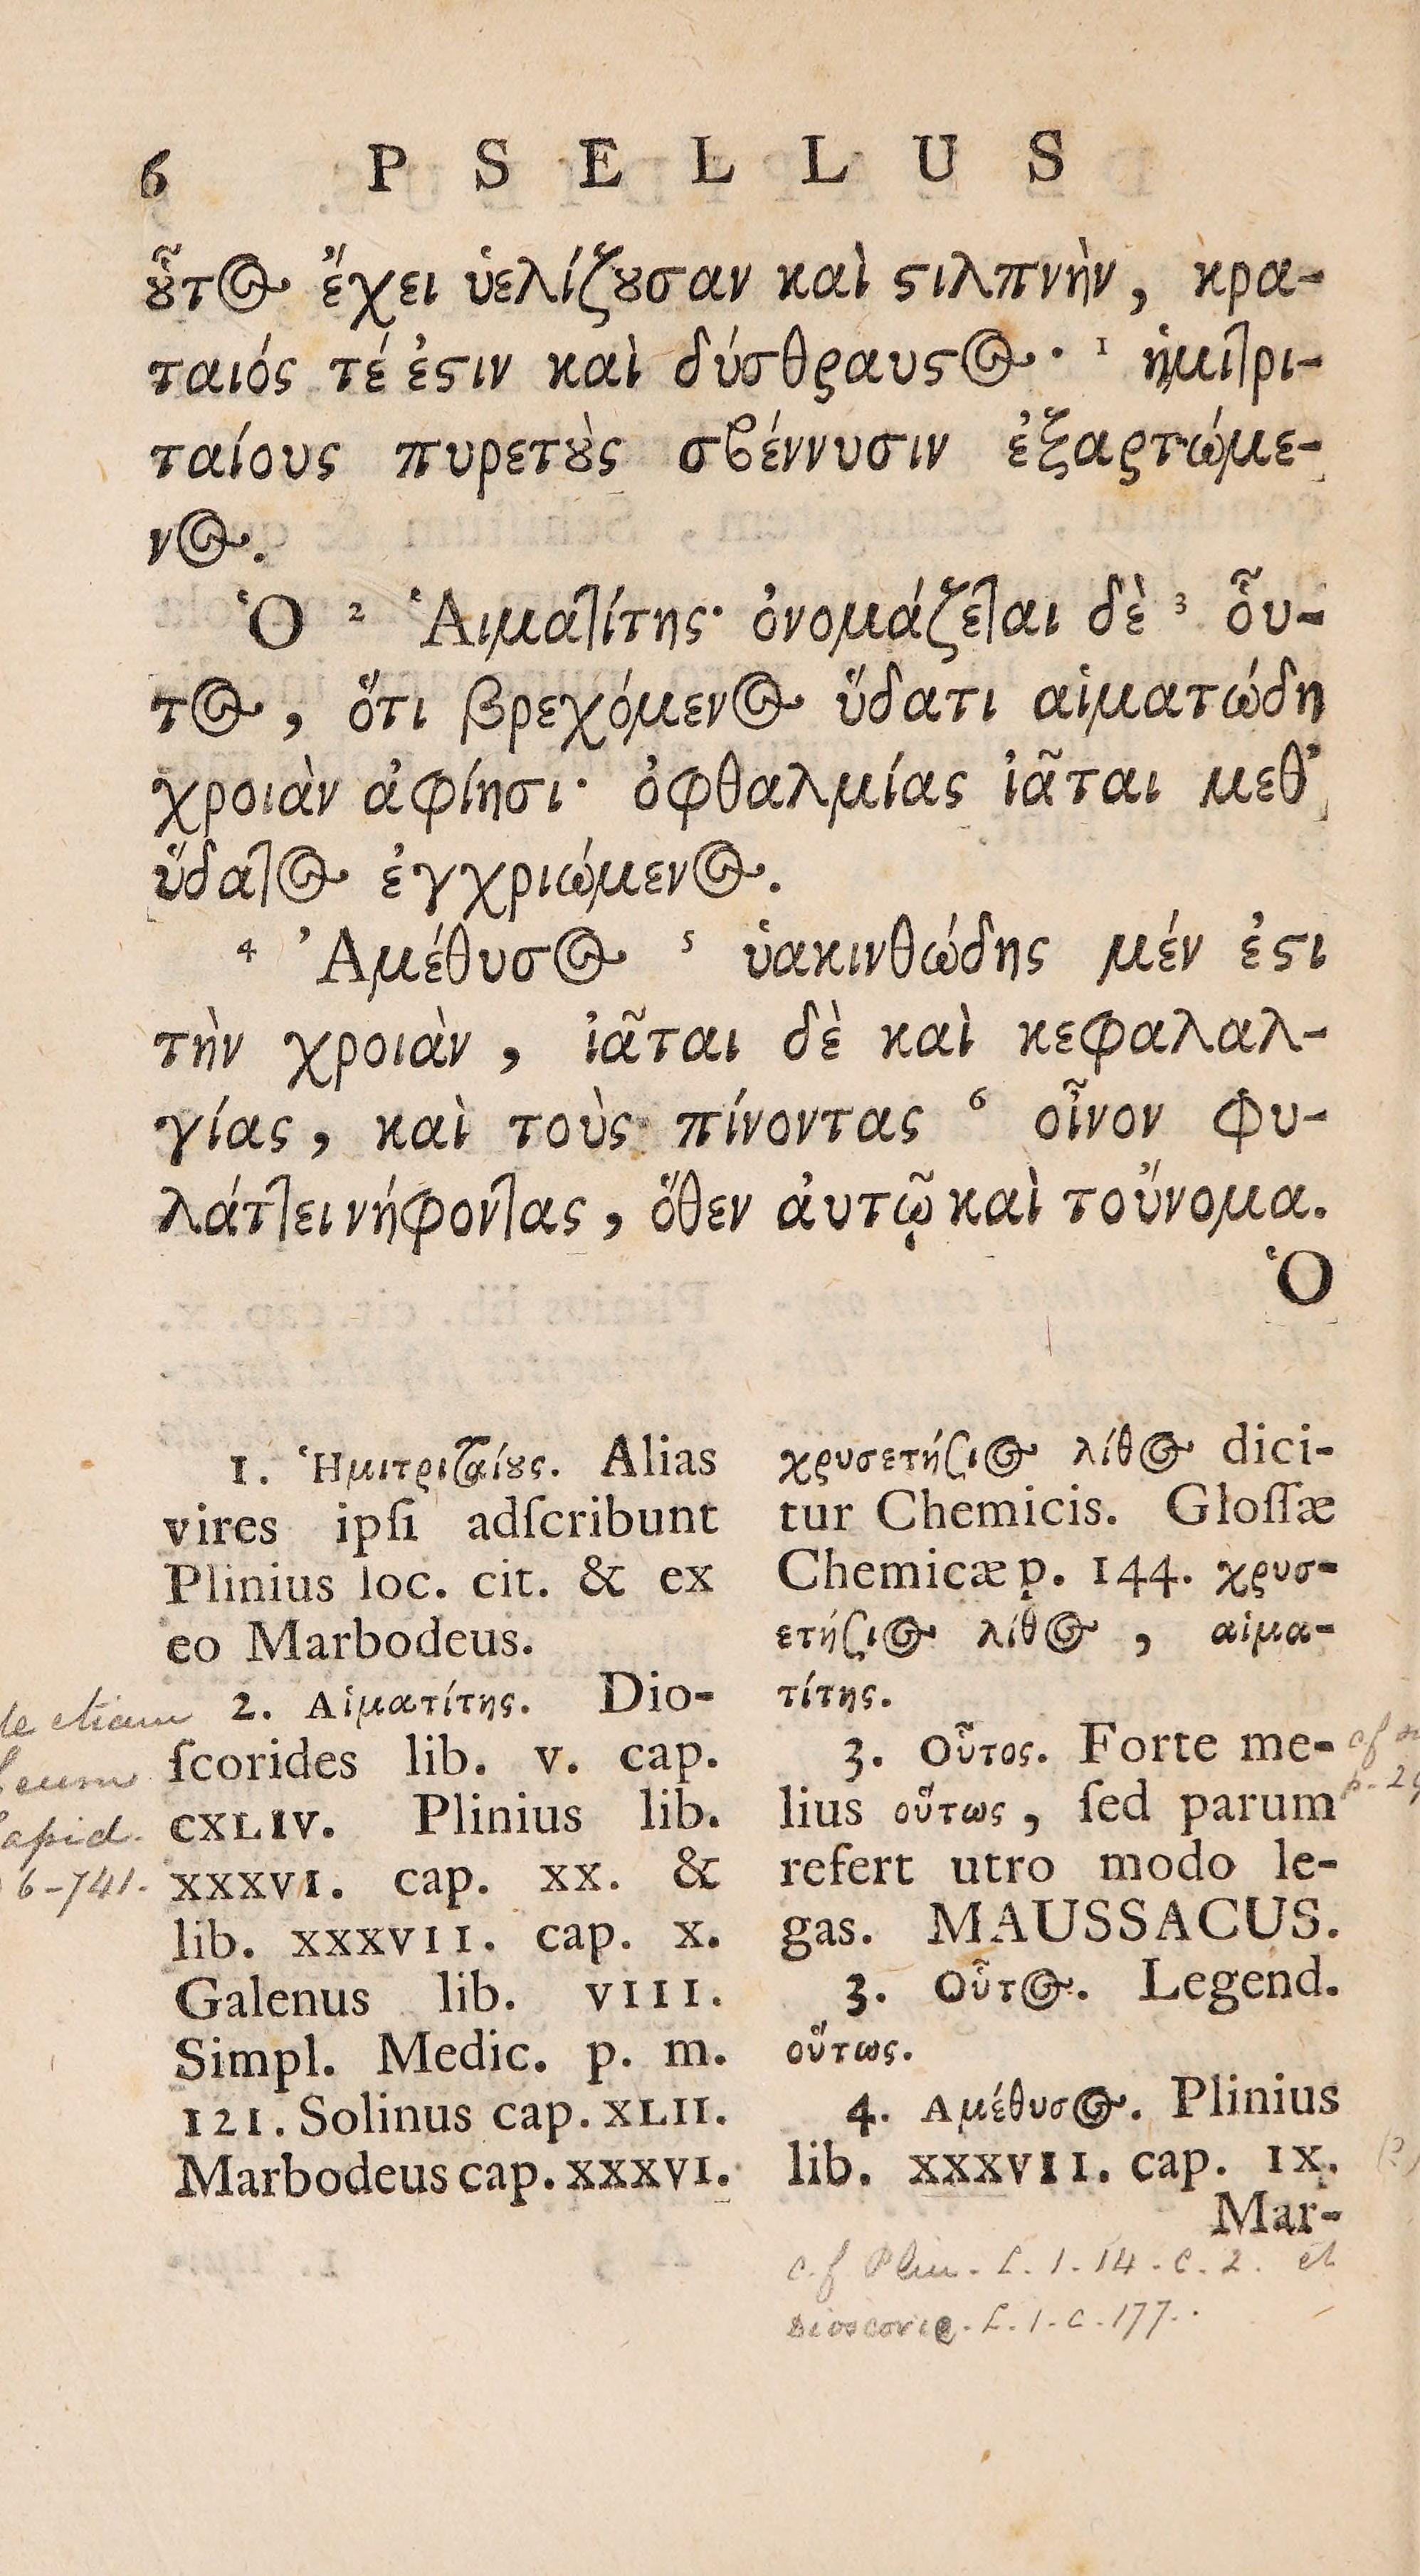 6 PSELLUS
ȣ̃τος ἔχει ὑελίζȣσαν καὶ ϛιλπνὴν, κρα-
ταιός τέ ἐϛιν καὶ δύσθραυϛος· 1 ἡμιτρι-
ταίους πυρετȣ̀ς σβέννυσιν ἐξαρτώμε-
νος.
Ὁ 2 Ἁιματίτης· ὀνομάζεται δὲ 3 ὗυ-
τος, ὅτι βρεχόμενος ὕδατι αἱματώδη
χροιὰν ἀφίησι· ὀφθαλμίας ἰᾶται μεθ᾽
ὕδατος ἐγχριώμενος.
4 Ἀμέθυσος 5 ὑακινθώδης μέν ἐϛι
τὴν χροιὰν, ἰᾶται δὲ καὶ κεφαλαλ-
γίας, καὶ τοὺς πίνοντας 6 οἶνον φυ-
λάττει νήφοντας, ὅθεν ἀυτῷ καὶ τοὔνομα.
Ὁ
1. Ἡμιτριταίȣς. Alias
vires ipſi adſcribunt
Plinius loc. cit. & ex
eo Marbodeus.
2. Αἱματίτης. Dio-
ſcorides lib. V. cap.
CXLIV. Plinius lib.
XXXVI. cap. XX. &
lib. XXXVII. cap. X.
Galenus lib. VIII.
Simpl. Medic. p. m.
121. Solinus cap. XLII.
Marbodeus cap. XXXVI.
χρυσετήζιος λίθος dici-
tur Chemicis. Gloſſæ
Chemicæ p. 144. χρυσ-
ετήζιος λίθος, αἱμα-
τίτης.
3. Οὗτος. Forte me-
lius οὕτως, ſed parum
refert utro modo le-
gas. MAUSSACUS.
3. Οὗτος. Legend.
οὕτως.
4. Αμέθυσος. Plinius
lib. XXXVII. cap. IX.
Mar-
etiam
eum
apid.
6-741.
cf
p. 29
c.f Plin. L. 1. 14. C. 2. et
Dioscorid. L. 1. C. 177.